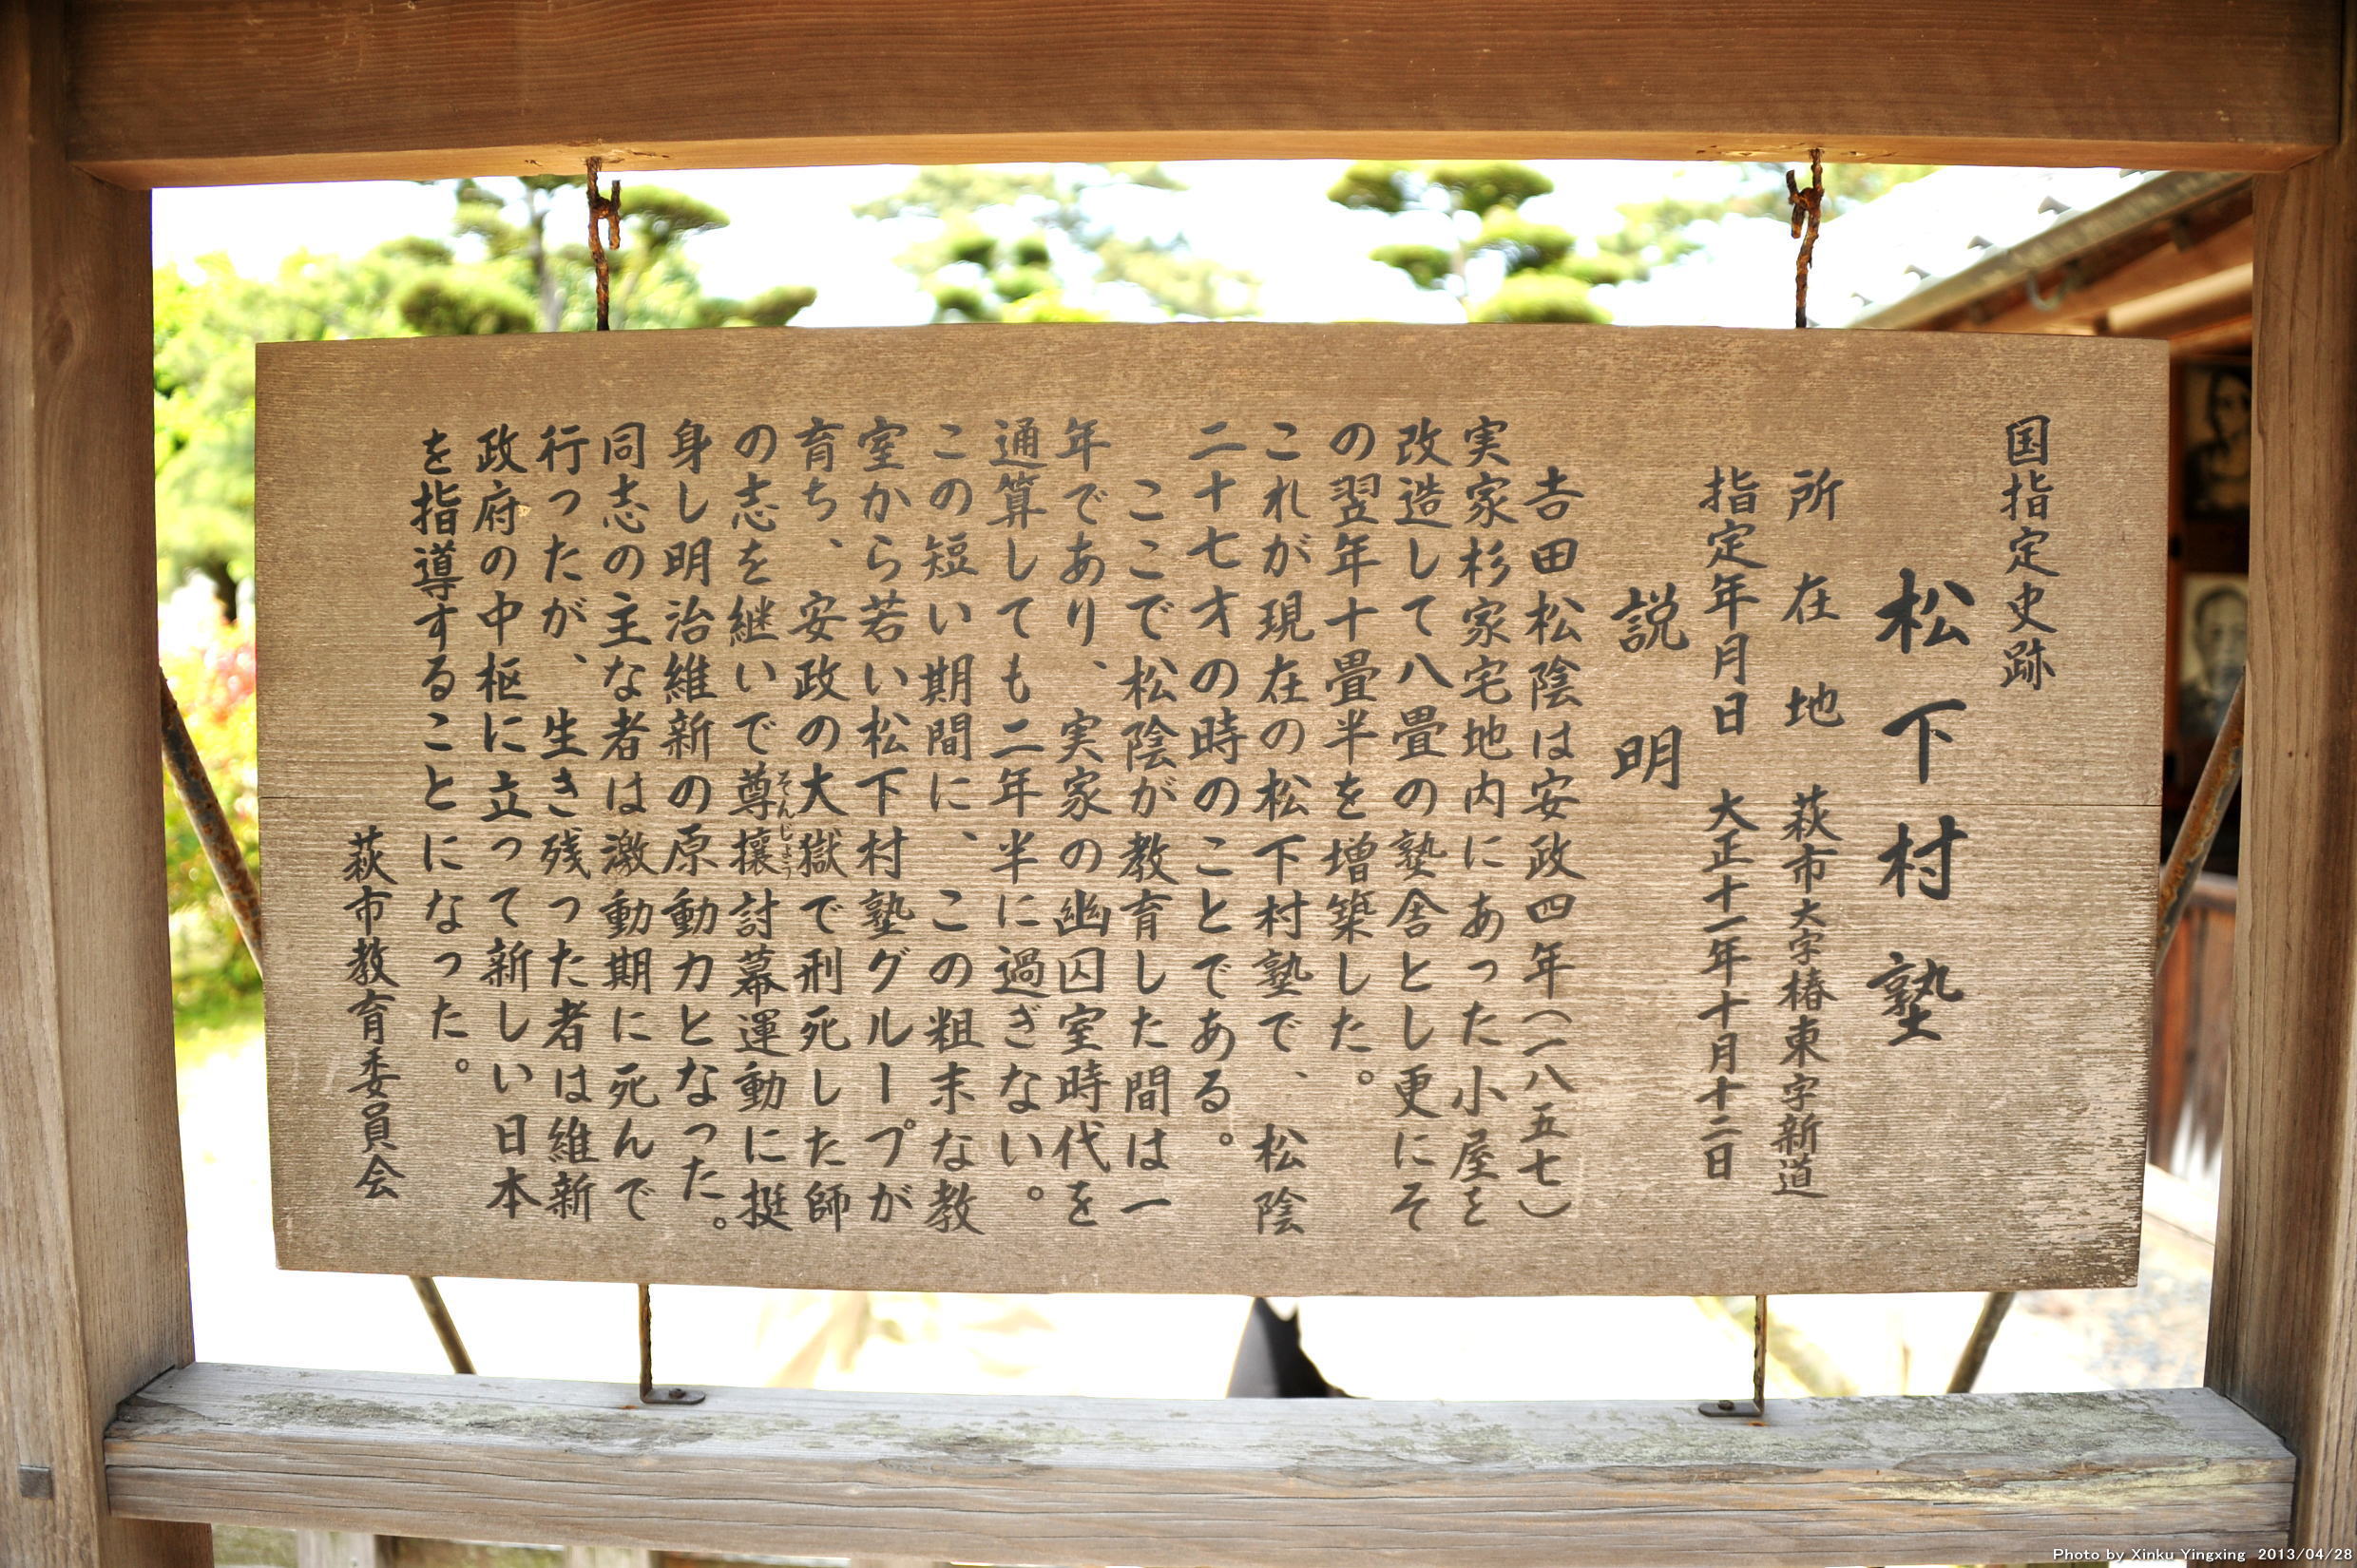 国指定史跡
松下村塾
所在地 萩市大字椿東字新道
指定年月日 大正十一年十月十二日
説明
吉田松陰は安政四年(一八五七)
実家杉家宅地内にあった小屋を
改造して八畳の塾舎とし更にそ
の翌年十畳半を増築した。
これが現在の松下村塾で、松陰
二十七才の時のことである。
ここで松陰が教育した間は一
年であり、実家の幽囚室時代を
通算しても二年半に過ぎない。
この短い期間に、この粗末な教
室から若い松下村塾グループが
育ち、安政の大獄で刑死した師
の志を継いで尊攘討幕運動に挺
そんじょう
身し明治維新の原動力となった。
同志の主な者は激動期に死んで
行ったが、生き残った者は維新
政府の中枢に立って新しい日本
を指導することになった。
萩市教育委員会
Photo by Xinku Yingxing 2013/04/28